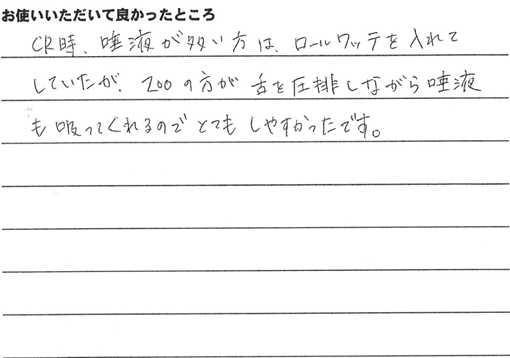 お使いいただいて良かったところ
CR時、唾液が多い方は、ロールワッテを入れて
していたが、ZOOの方が舌を圧排しながら唾液
も吸ってくれるのでとてもしやすかったです。